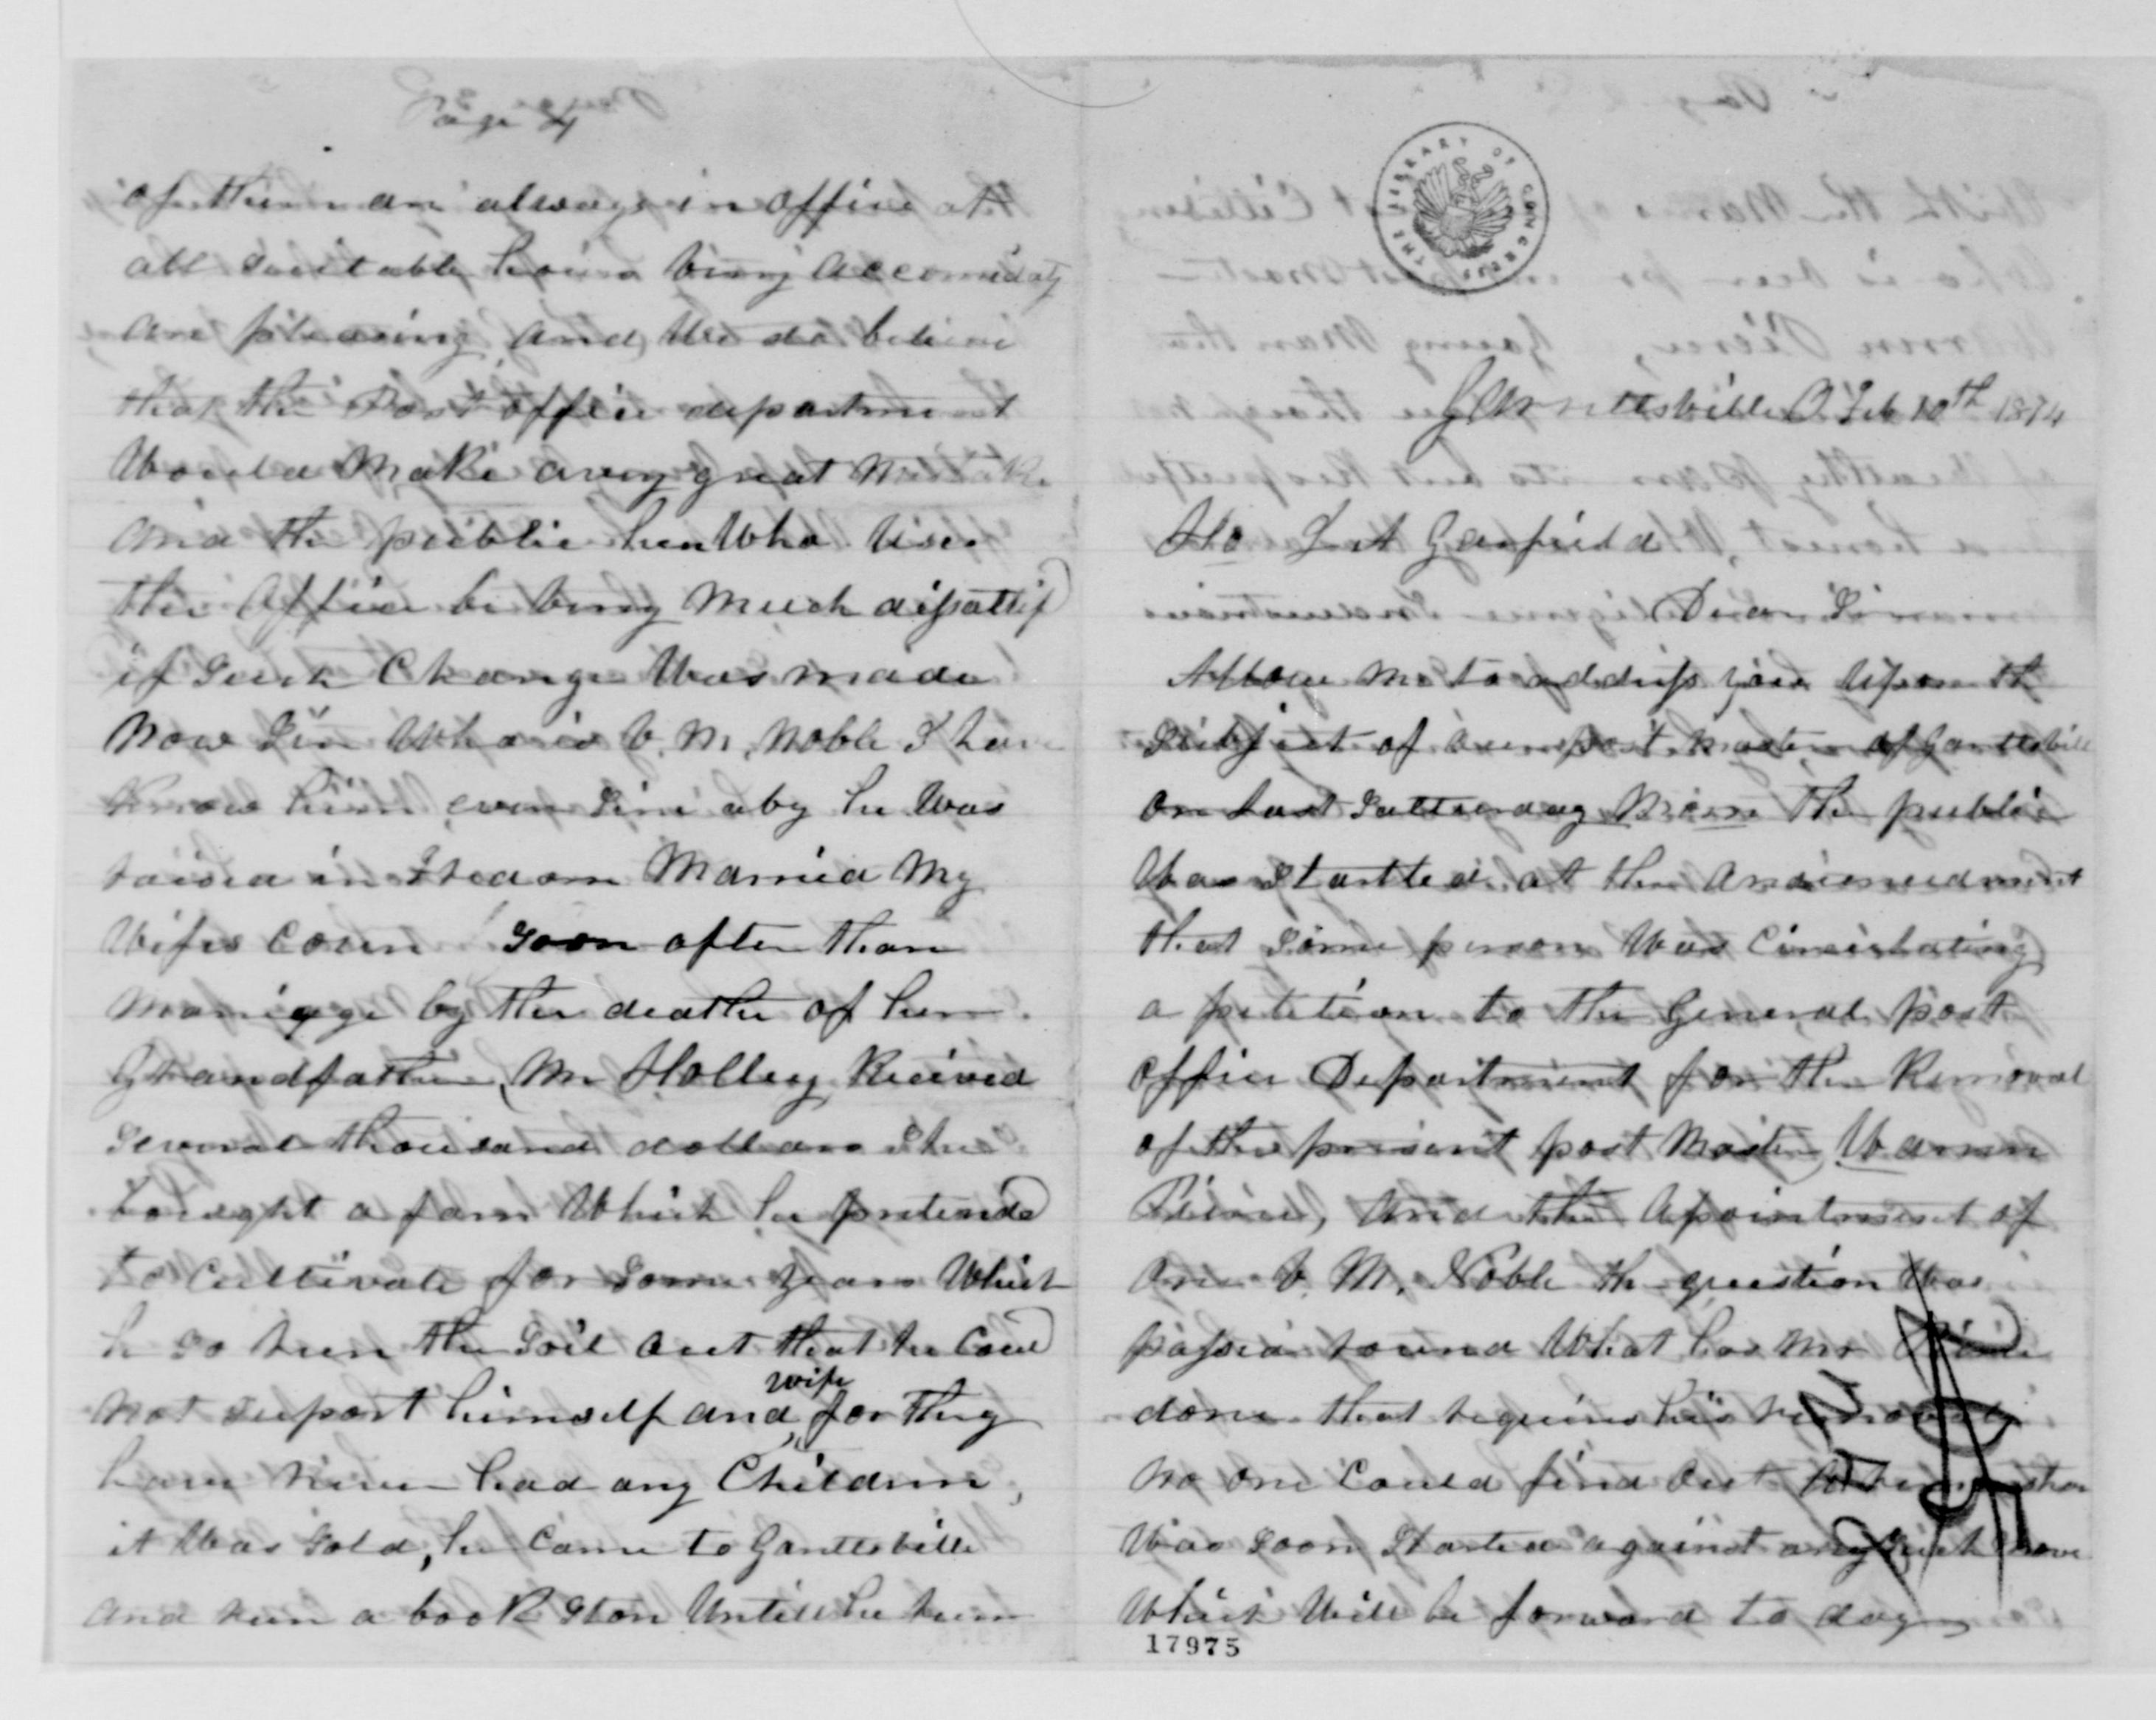 Page 4
of them are always in office at
all suitable hours being accomidaty
are pleasing and We do believe
that the Post office department
Would Make a very great Mistake
and the public here Who Uses
the Office be being Much disatisf
if such Change Was made
Now Sir Who is V. M. Noble I have
know him ever sinc aby he Was
raised in Fredom Married My
Wifes Cosin Soon after thare
Marriage by the death of her
Grandfather, Mr Holley Recived
several thousand dollars She
bought a farm Which he pretended
to Cultivate for some years Which
he so run the soil out that he Coud
not suport himself and wife for they
have never had any Children,
it Was sold, he Came to Garrttsville
and run a book store Untill he run
Garrettsville O. Feb 10th 1874
Ho J A Garfield
Dear Sir
Allow me to address you Upon the
Subject of our post Master, of Garrttsvill
on last Satterday Morn the public
Was startled at the Anouncedment
that some person Was Circulating
a petition to the General post
office Department for the Removal
of the present post Master Warren
Pierce, and the Apointment of
one V. M. Noble the question Was
passed round What has Mr Pierce
done that requires his removal
no one Could find Out
Was soon Started against any such move
Which Will be forward to day
17975
THE LIBRARY OF CONGRESS